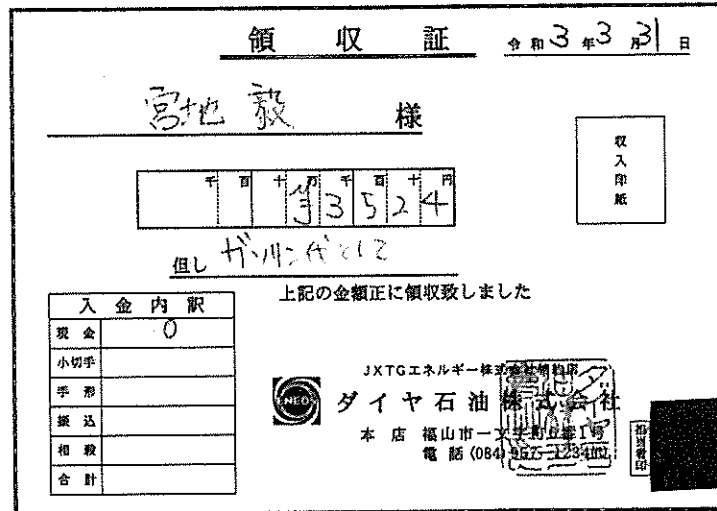 領収証
令和3年3月31日
宮地 毅 様
収入印紙
千百十万千百十円
¥33524
但し ガソリン代として
上記の金額正に領収致しました
入金内訳
現金 0
小切手
手形
振込
相殺
合計
JXTGエネルギー株式会社特約店
NEOS
ダイヤ石油株式会社
本店 福山市一文字町6番1号
電話 (084)
担当者印